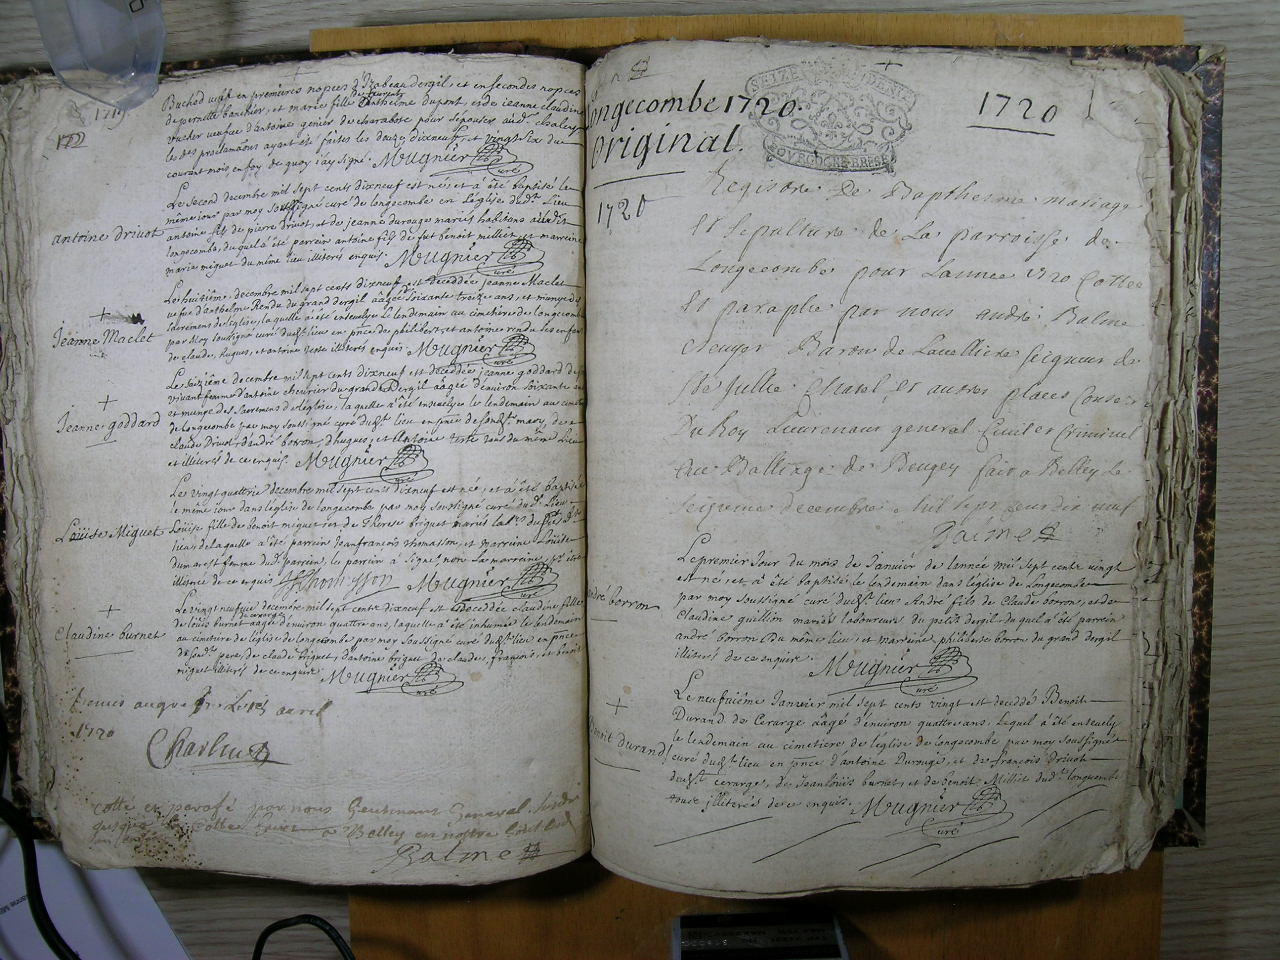 1719
1720
Buchod veuf en premieres nopces d'Izabeau dergil, et en secondes nopces
de pernille banchier, et marie fille de laurent Anthelme dupont, et de jeanne claudine
vucher veufve d'antoine genier de charabote pour epouser aud. chaley
les des proclamaõns ayant été faites les douze dixneuf, et vingt six du
courant mois en foy de quoy j'ay signé. Mugnier curé
antoine drivot
Le second decembre mil sept cents dixneuf est né et a été baptisé le
même jour par moy soussigné curé de longecombe en l'église dud.t lieu
antoine fils de pierre drivot, et de jeanne durouge mariés habitans aud.t
longecombe, du quel a été parrein antoine fils de fut benoit milliet, et marreine
marie miguet du même lieu illiterés enquis. Mugnier curé
Jeanne Maclet
Le huitiême decembre mil sept cents dixneuf est decedeé jeanne Maclet
veuve d'anthelme Rendu du grand dergil âagée soixante treize ans, et munye des
sacremens de l'église, la quelle a été ensevelye le lendemain au cimetiere de longecombe
par moy soussigné curé dud.t lieu en p̃nce de philibert, et antoine rendu ses enfans
de claude, hugues, et antoine teste illiterés enquis. Mugnier curé
Jeanne goddard
Le seiziême decembre mil sept cents dixneuf est decedeé jeanne goddard
vivant femme d'antoine chevrier du grand Dergil âagée d'environ soixante ans
et munye des sacremens de l'église, la quelle a été ensevelye le lendemain au cimetiere
de longecombe par moy soussigné curé dud.t lieu en p̃nce de sond.t mary, de
claude Drivot, d'andré borron, d'hugues, et Antoine teste tous du même lieu
et illiterés de ce enquis. Mugnier curé
Loüise Miguet
Le vingt quattre decembre mil sept cents dixneuf est né, et a été baptisé
le même jour dans l'église de longecombe par moy soussigné curé dud.t lieu
Loüise fille de benoit miguet et de Therese briguet mariés
lieu de laquelle a été parrein Jeanfrancois thomasson, et marreine Loüise
dumarest femme dud.t parrein, le parrein a signé, non la marreine
illiterée de ce enquis Thomasson Mugnier curé
Claudine burnet
Le vingt neufviême decembre mil sept cents dixneuf est decedée claudine fille
de loüis burnet âagée d'environ quattre ans, laquelle a été inhumée le lendemain
au cimetiere de l'église de longecombe par moy soussigné curé dud.t lieu en p̃nce
dud.t pere, de claude briguet, d'antoine briguet de claude, françois, et benoit
miguet illiterés de ce enquis. Mugnier curé
avril
1720
Charlin
cotte et parafé par nous Lieutenant General
a Belley en nostre hotel
Balme
Longecombe 1720
Original.
1720
SEIZE DENIERS
BOURGOGNE BRESSE
1720
Registre de Bapthesme mariage
Et sepulture de la parroisse de
Longecombe pour Lannee 1720 Cottee
Et paraphe par nous andré Balme
Ecuyer Baron de Lavelliere seigneur de
Ste Jullie Chatel, et autres places Conser
Du Roy Lieutenant general Civil et Criminel
au Balliage de Beugey fait a Belley le
seizieme decembre mil sept cent dix neuf
Balme
andré borron
Le premier jour du mois de Janvier de l'année mil sept cents vingt
est né, et a été baptisé le lendemain dans l'église de Longecombe
par moy soussigné curé dud.t lieu André fils de Claude borron, et de
Claudine guillon mariés laboureurs du petit dergil, du quel a été parrein
andré borron du même lieu, et marreine philiberte borron du grand dergil
illiterés de ce enquis. Mugnier curé
Benoit durand
Le neufviême Janvier mil sept cents vingt est decedé Benoit
Durand de Cerarge âagé d'environ quattre ans, lequel a été ensevely
le lendemain au cimetiere de l'église de longecombe par moy soussigné
curé dud.t lieu en p̃nce d'antoine Durouge, et de françois Drivot
dud.t cerarge, de Jeanloüis burnet, et de benoit Milliet dud.t longecombe
tous illiterés de ce enquis. Mugnier curé